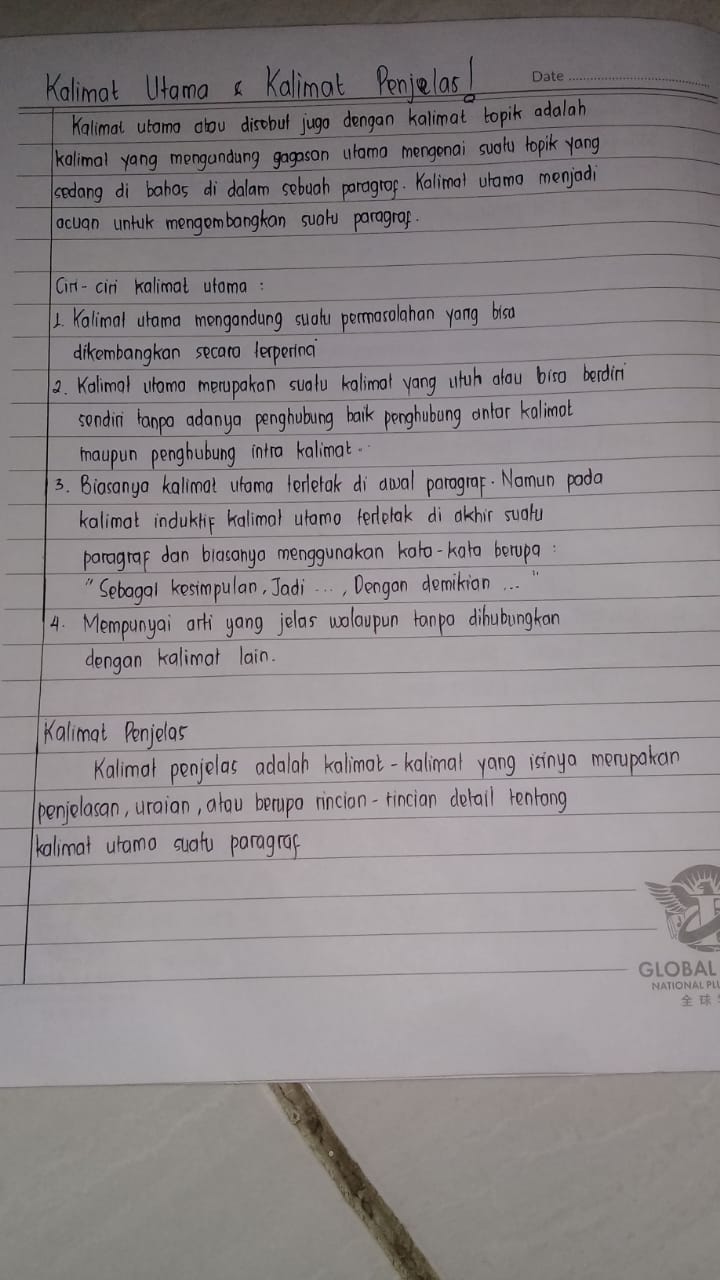 Kalimat Utama & Kalimat Penjelas!
Date
Kalimat utama atau disebut juga dengan kalimat topik adalah
kalimat yang mengandung gagasan utama mengenai suatu topik yang
sedang di bahas di dalam sebuah paragraf. Kalimat utama menjadi
acuan untuk mengembangkan suatu paragraf.
Ciri - ciri kalimat utama :
1. Kalimat utama mengandung suatu permasalahan yang bisa
dikembangkan secara terperinci
2. Kalimat utama merupakan suatu kalimat yang utuh atau bisa berdiri
sendiri tanpa adanya penghubung baik penghubung antar kalimat
maupun penghubung intra kalimat.
3. Biasanya kalimat utama terletak di awal paragraf. Namun pada
kalimat induktif kalimat utama terletak di akhir suatu
paragraf dan biasanya menggunakan kata - kata berupa :
"Sebagai kesimpulan, Jadi ..., Dengan demikian ..."
4. Mempunyai arti yang jelas walaupun tanpa dihubungkan
dengan kalimat lain.
Kalimat Penjelas
Kalimat penjelas adalah kalimat - kalimat yang isinya merupakan
penjelasan, uraian, atau berupa rincian - rincian detail tentang
kalimat utama suatu paragraf
GLOBAL
NATIONAL PLU
全球